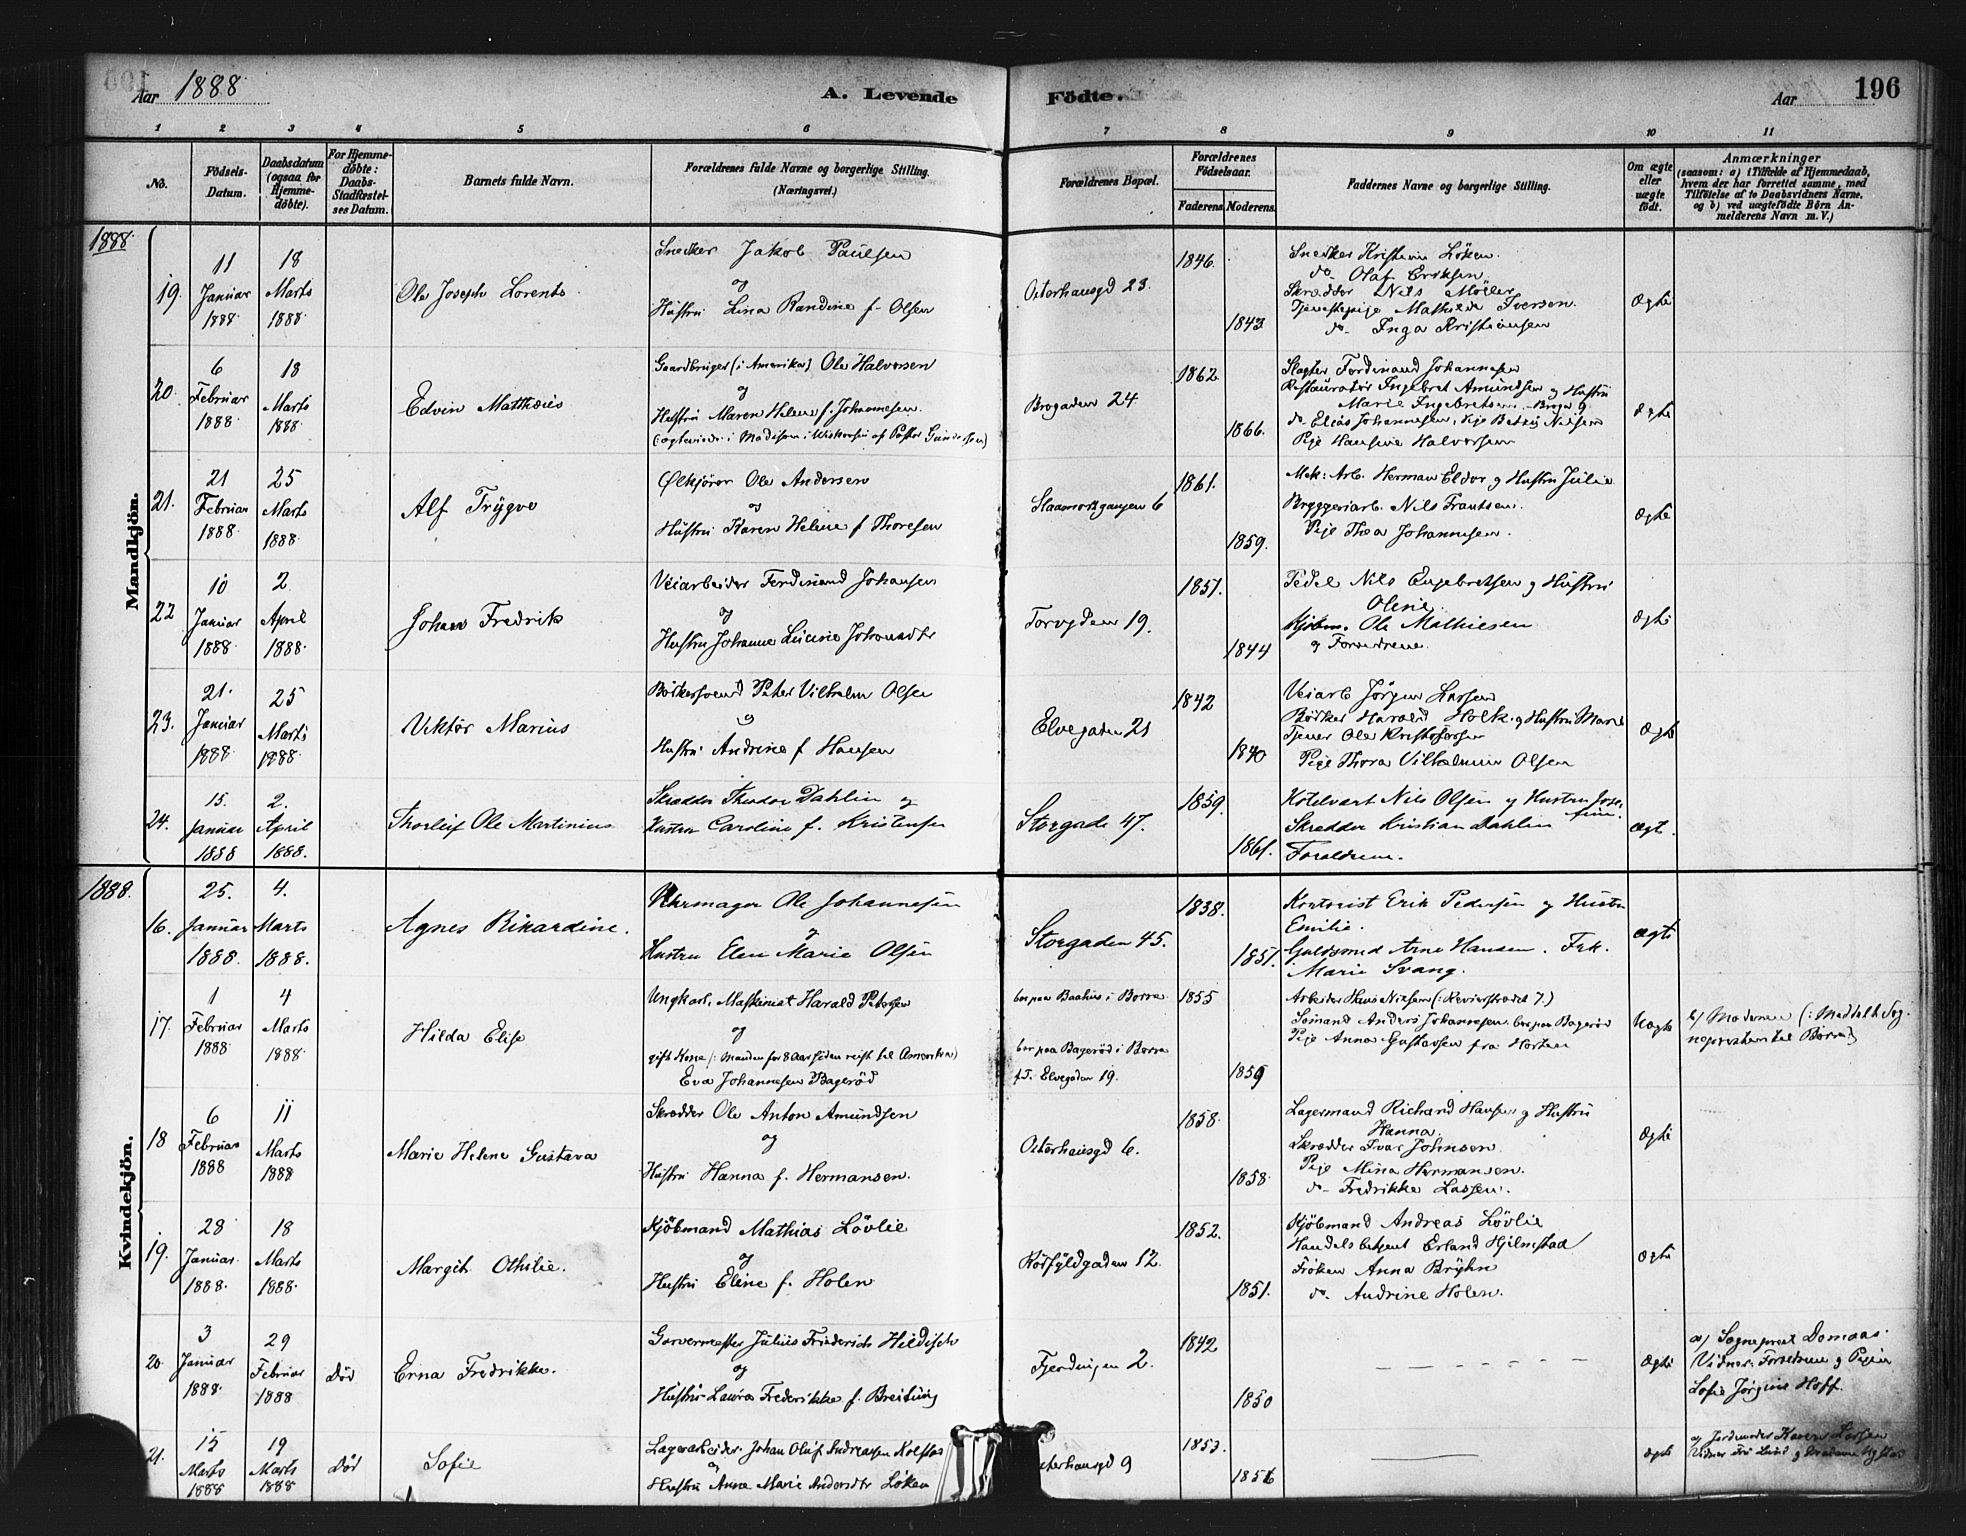 Aar 1888 A. Levende Födte. Aar 196
1 2 3 4 5 6 7 8 9 10 11
No.
Födsels-Datum.
Daabsdatum (ogsaa for Hjemme-döbte).
For Hjemme-döbte: Daabs-Stadfæstel-ses Datum.
Barnets fulde Navn.
Forældrenes fulde Navne og borgerlige Stilling. (Næringsvei.)
Forældrenes Bopæl.
Forældrenes Födselsaar.
Faderens Moderens.
Faddernes Navne og borgerlige Stilling.
Om ægte eller uægte födt.
Anmærkninger
(saasom: a) i Tilfælde af Hjemmedaab, hvem der har forrettet samme, med Tilföielse af to Daabsvidners Navne, og b) ved uægtefödte Börn An-melderens Navn m. V.)
1888.
Mandkjön.
19. 11 Januar 1888 18 Marts 1888
Ole Joseph Lorents
Snedker Jakob Paulsen
og
Hustru Lina Randine f. Olsen
Osterhausgd 23.
1846. 1843
Snedker Kristian Löken.
do Olaf Eriksen
Skrædder Nils Möller
Tjenestepige Mathilde Iversen.
do Inga Kristiansen
Ægte
20. 6 Februar 1888 18 Marts 1888
Edvin Matthæus
Gaardbruger (i Amerika) Ole Halvorsen
og
Hustru Maren Helene f. Johannesen.
(: ægteviede i Madison i Wiskonsin af Pastor Gundersen)
Brogaden 24.
1862. 1866.
Slagter Ferdinand Johannesen
Restauratör Ingebret Amundsen og Hustru
Marie Ingebretsen. Brogd 9
do Elias Johannesen, Pige Betzy Nilsen
Pige Hansine Halvorsen
Ægte
21. 21 Februar 1888 25 Marts 1888
Alf Trygve
Ölkjörer Ole Andersen
og
Hustru Karen Helene f. Thoresen
Slaamotgangen 6
1861. 1859.
Mek: Arb. Herman Eldor og Hustru Julie
Bryggeriarb. Nils Frantsen.
Pige Thea Johannesen.
Ægte
22 10 Januar 1888 2 April 1888
Johan Fredrik
Veiarbeider Ferdinand Johansen
og
Hustru Johanne Lucine Johansdtr
Torvgden 19.
1851. 1844
Pedel Nils Engebretsen og Hustru
Oline.
Kjöbm. Ole Mathiesen
og Forældrene.
Ægte
23. 21. Januar 1888 25 Marts 1888
Viktor Marius
Bödkersvend Peter Vilhelm Olsen
og
Hustru Andrine f. Hansen
Elvegaden 21
1842 1840
Veiarb Jörgen Larsen
Bödker Harald Holk og Hustru Marie
Tjener Ole Kristofersen
Pige Thora Vilhelmine Olsen
Ægte
24. 15. Januar 1888 2. April 1888.
Thorleif Ole Martinius
Skrædder Theodor Dahlin og
Hustru Caroline f. Kristensen
Storgade 47.
1859. 1861.
Hotelvært Nils Olsen og Hustru Jose-
fine.
Skrædder Kristian Dahlin
Forældrene.
Ægte.
1888.
Kvindekjön.
16. 25. Januar 1888. 4. Marts 1888.
Agnes Rikardine.
Uhrmager Ole Johannesen
og
Hustru Elen Marie Olsen
Storgaden 45.
1838. 1851.
Kontorist Erik Pedersen og Hustru
Emilie.
Guldsmed Arne Hansen. Frk.
Marie Svang.
Ægte
17. 1 Februar 1888 4 Marts 1888
Hilda Elise
Ungkarl, Maskinist Harald Petersen
og
gift Kone (: Manden for 8 Aar siden reist til Amerika)
Eva Johannesen Bageröd
bor paa Baahus i Borre
bor paa Bageröd i Borre
f.T. Elvegaden 19.
1855 1859
Arbeider Hans Nilsen (: Revierstrædet 7.)
Sömand Anders Johannesen bor paa Bageröd
Pige Anna Gustavsen fra Horten
Uægte
b/ Moderen (: Meddelt Sog-
nepresten til Borre)
18 6 Februar 1888 11 Marts 1888
Marie Helene Gustava
Skrædder Ole Anton Amundsen
og
Hustru Hanna f. Hermansen.
Osterhausgd 6.
1858. 1858
Lagermand Richard Hansen og Hustru
Hanna.
Skrædder Ivar Johnsen.
Pige Mina Hermansen.
do Fredrikke Lassen.
Ægte
19. 28 Januar 1888 18 Marts 1888.
Margit Othilie.
Kjöbmand Mathias Lövlie
og
Hustru Eline f. Holen
Rosfyldgaden 12.
1852. 1851.
Kjöbmand Andreas Lövlie
Handelsbetjent Erland Hjelmstad
Fröken Anna Bryhn
do. Andrine Holen.
Ægte
20. 3 Januar 1888. 29 Februar 1888 Död
Erna Fredrikke.
Garvermester Julius Friederich Heidisch
og
Hustru Laura Frederikke f. Breitung
Fjerdingen 2.
1842 1850
Ægte
a) Sogneprest Domaas.
Vidner: Forældrene og Pigen
Sofie Jörgine Hoff.
21. 15 Marts 1888 19 Marts 1888 Död
Sofie
Lagerarbeider Johan Oluf Andreassen Kolstad
og
Hustru Anne Marie Andersdtr Löken
Osterhausgd 9
1853. 1856
Ægte
a) Jordemoder Karen Larsen
Vidner Fru Lund og Madame Nystad